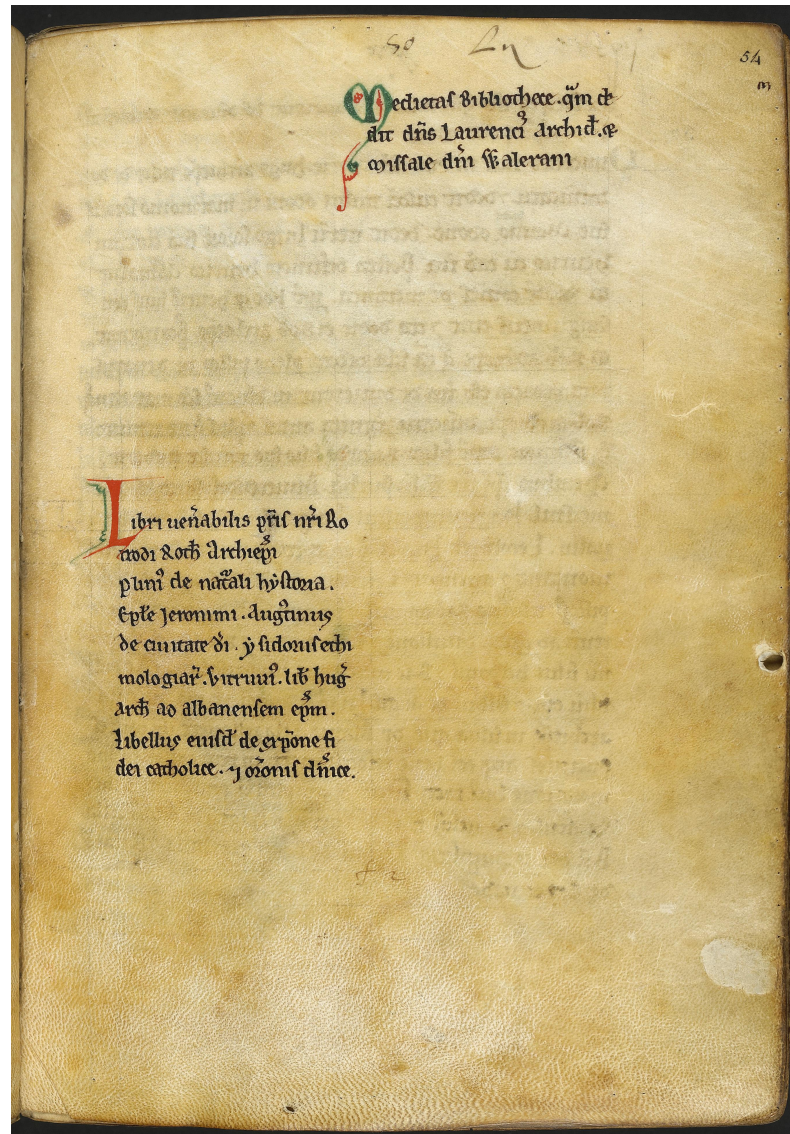 54
Medietas Bibliothece. qm̄ de
dit dn̄s Laurenci⁹ archid̄. &
missale dn̄i Waleranī
Libri uen̄abilis pr̄is nr̄i Ro
trodi Roth̄ Archiep̄i
plini⁹ de nat̄ali hẏstoria.
Ep̄le Jeronimi. Augᵗinus
de ciuitate d̄i. ẏsidorus ethi
mologiar̄. Vitruui⁹. lib̄ huḡ
arch̄ ad albanensem ep̄m.
Libellus eiusd̄ de exp̄one fi
dei catholice. ⁊ or̄onis dn̄ice.